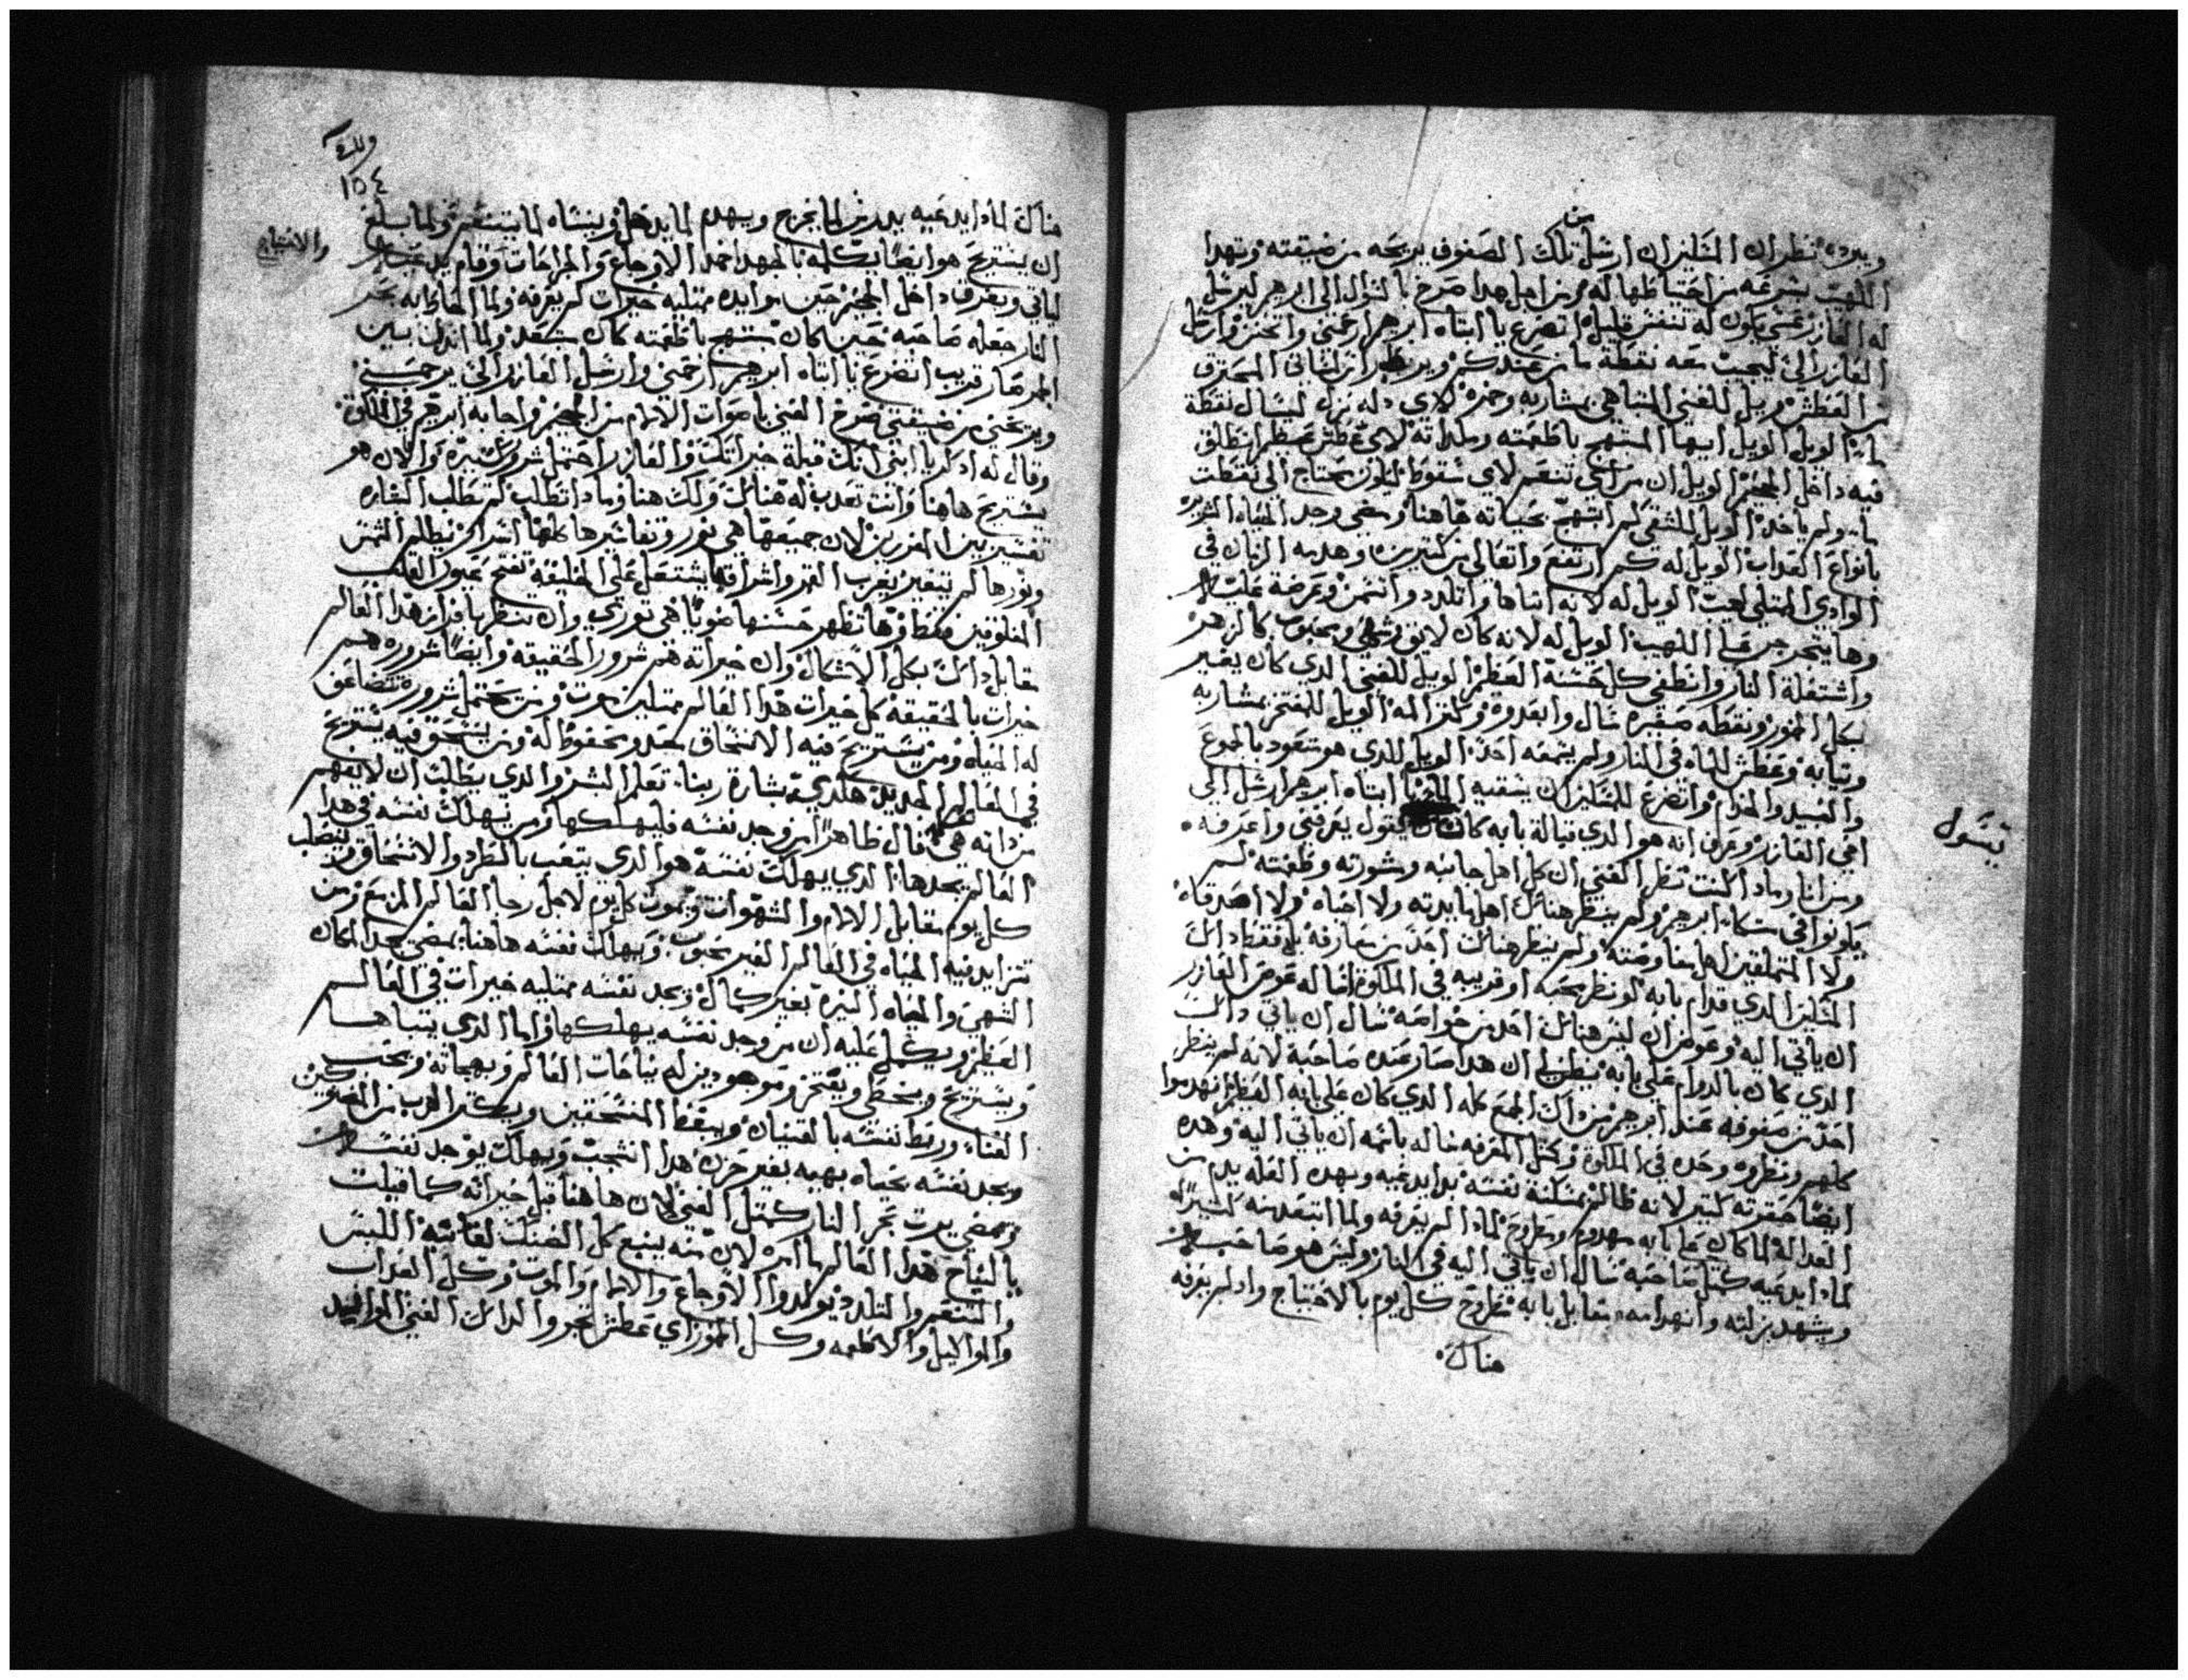 من
ويبرده نظر ان المسكين ان ارسل تلك الصفوف يريحه من ضيقته وتهدا
اللهيب بسرعه من احتياطها له ومن اجل هدا صرخ بالسوال الى ابرهيم ليرسل
له العازر عسى يكون له تنفس قليل اتضرع يا ابتاه ابرهيم ارحمني واتحنن وارسل
العازر الي ليجيب معه نقطة ما من عندكم ويبرد لساني المحترق
من العطش ويل للغني المتباهي بمشاربه وخمره لاي دله نزل ليسال نقطة
ما الويل الويل ايها المبتهج باطعمته وملداته لاي عطش عظيم انطلق
فيه داخل الجحيم الويل ان من اي تنعم لاي سقوط يكون يحتاج الى نقطت
ما ولم ياخد الويل للشقي كم ابتهج بحياته هاهنا ومضى وجد الحياه المريره
بانواع العداب الويل له كم ارتفع واتعالى من كتيرين وهدمه الزمان في
الوادي الممتلي لهيب الويل له لانه اتباها واتلدد واتنمق وعرضه عليه
وها يتجرجر على اللهيب الويل له لانه كان لايق وشهي ومحبوب كالزهر
واشتعلة النار وانطفى كل حسنه العظيم الويل للغني الدي كان يفتخر
بكل الخمور ونقطه صغيره سال وابعدوه وكتر المه الويل للمفتخر بمشاربه
وتيابه وعطش للماه في النار ولم يسمعه احد الويل للدي هو متعود بالجموع
والعبيد والخدام واتضرع للمسكين ان يسقيه الما يا ابتاه ابرهيم ارسل الي
اخي العازر وعرف انه هو الدي قبالة بابه كان يقول يعرفني واعرفه
يتسول
ومن انا وماد اكنت نظر الغني ان كل اهل جانبه ومشورته وطغمته لم
يكونوا في سكنا ابرهيم ولم ينظر هناك اهل مايدته ولا احباه ولا اصدقاه
ولا المتملقين اهل مفاوضته ولم ينظر هناك احد من معارفه بل فقط داك
المسكين الدي قدام بابه لو نظر محبه او قريبه في الملكوت لقاله عوض العازر
ان ياتي اليه وعوض ان ليس هناك احد من خواصه سال ان ياتي داك
الدي كان بالدوام على بابه يظن ان هدا صار عنده صاحبه لانه لم ينظر
احد من صفوفه عند ابرهيم من داك الجمع كله الدي كان على بابه العظيم انهدموا
كلهم ونظروه وحده في الملكوت وكمتل المعرفه ساله باسمه ان ياتي اليه وهده
ايضا حقرته كتير لانه ظالم بمسكنة نفسه بدا يدعيه وبهده العله يدم من
العداله لما كان على بابه مهدوم ومطروح لمادا لم يعرفه ولما ابتعد منه كتير
لمادا يدعيه كمتل صاحبه سال ان ياتي اليه في النار وليس هو صاحب له
ويشهد بزلته وانهدامه مقابل بابه مطروح كل يوم بالاحتياج واد لم يعرفه
هناك
١٥٤
هناك لمادا يدعيه يدرش لما يخرج ويهدم لما يدخل وينساه لما يتنفس ولما بلغ
والاحتياج
ان يستريح هو ايضا يكلمه بالجهد اخد الاوجاع والجراحات وقام يدعيه
لياتي ويعرف داخل الجحيم حين موايده ممتليه خيرات لم يعرفه ولما القاطه بحر
النار جعله صاحبه حين كان يبتهج باطعمته كان متعد ولما اندل بين
الجمر صار قريب اتضرع يا ابتاه ابرهيم ارحمني وارسل العازر الي يرحمني
ويريحني من ضيقتي صرخ الغني باصوات الالام من الجحيم واجابه ابرهيم في الملكوت
وقال له ادكر يا ابني انك قبلة خيراتك والعازر احتمل شرور كتيره والان هو
يستريح هاهنا وانت تعدب له هناك ولك هنا ومادا تطلب لم تطلب البشاره
تفسير من المفسرين لان جميعها هي نور وتفاسيرها كلها اسراج لم يظلم الشمس
ونورها لم يتغير بغرب القمر واشراقها يشتعل على الخليقه تفتح عيون القلب
المغلوقين فقط وها تظهر حسنها ضويا هي توري وان تنظرها فرز هدا العالم
مقابل داك بكل الاشكال وان خيراته هم شرور الحقيقه وايضا شروره هم
خيرات بالحقيقه كل خيرات هدا العالم ممتليه موت ومن يحتمل شروره تتضاعف
له الحياه ومن يستريح فيه الانسحاق معد ومحفوظ له ومن ينسحق فيه يستريح
في العالم الجديد هكدي بشارة ربنا تعلم البشر والدي يطلب ان لا يفهم
من داته هي قال ظاهرا من وجد نفسه فليهلكها ومن يهلك نفسه في هدا
العالم يجدها الدي يهلك نفسه هو الدي يتعب بالطرد والانسحاق وينصلب
كل يوم مقابل الالام والشهوات ويموت كل يوم لاجل رجا العالم المزمع ومن
تتزايد فيه الحياه في العالم الغير محبوب ويهلك نفسه هاهنا يمضي يجد المكان
الشهي والحياه النيره بغير كمال ويجد نفسه ممتليه خيرات في العالم
العظيم ويكمل عليه ان من وجد نفسه يهلكها واما الدي يتباها
ويستريح ويخطي ويفتخر وموهودين له نياحات العالم وبهجاته ويحب
الغنا وربط نفسه بالقنيان ويبغض المنسحقين ويكتر الهرب من المحزونين
ويجد نفسه بحياه بهيه بغير حزن هدا انشجب ويهلك يوجد نفسه
ويمضي يرت بحر النار كمتل الغني لان هاهنا قبل خيراته كما قيلت
بالنياح هدا العالم ما امره لان منه ينبع كل الضنك لقانيه اللبس
والتنعم والتلدد يولدوا الاوجاع والالام والموت وكل العداب
والمواكيل والاطعمه وكل الخمور اي عطش يخروا لداك الغني المرايد